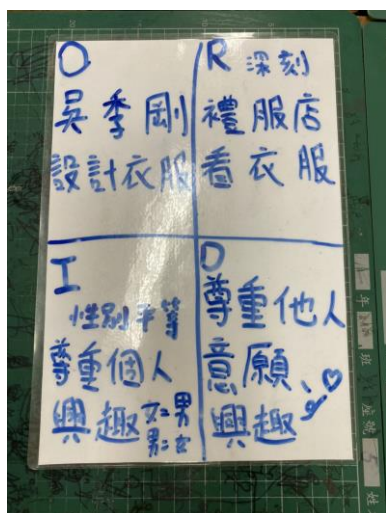 O
吳季剛
設計衣服
R 深刻
禮服店
看衣服
I
性別平等
尊重個人
興趣 女=男
男=女
D
尊重他人
意願、
興趣
年
班
座號 5
姓